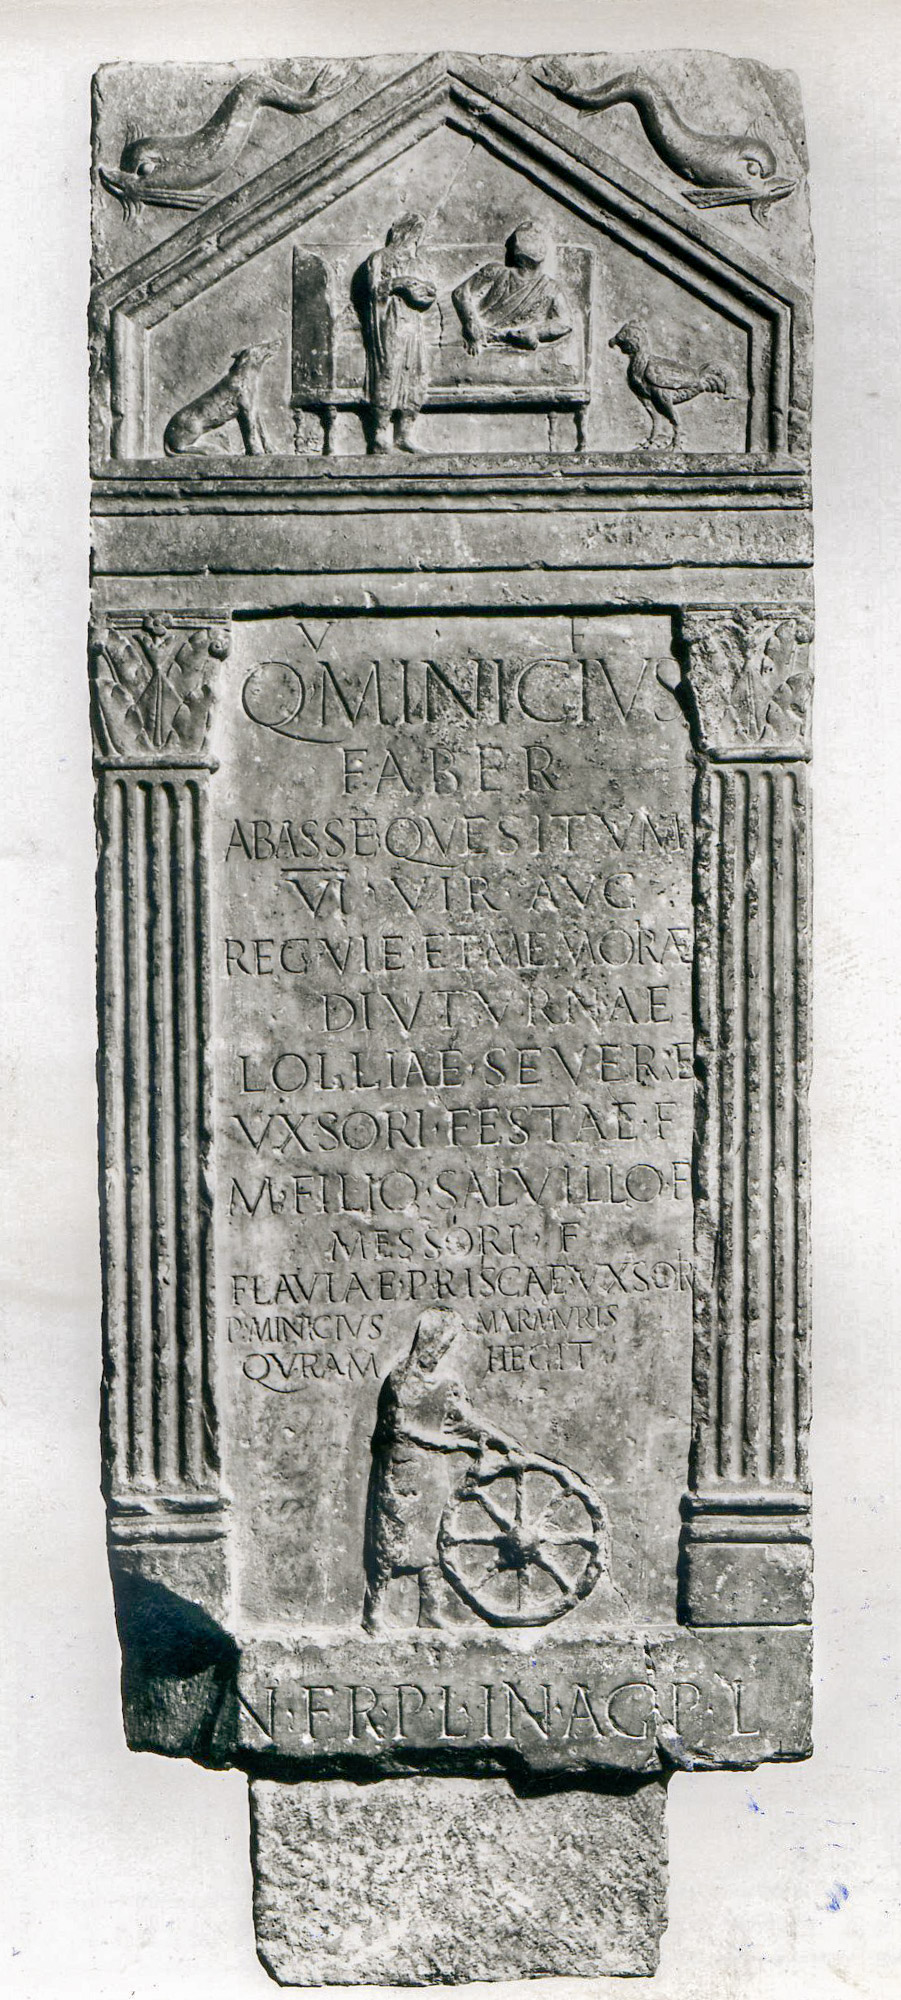 V F
Q·MINICIVS
FABER
ABASSE·QVESITVM
V̅I̅·VIR·AVG
REG·VIE·ET·ME·MORÆ
DIVTVRNAE
LOLLIAE·SEVERE
VXSORI·FESTAE·F
M·FILIO·SALVILLO·F
MESSORI·F
FLAVIAE·PRISCAE·VXSOR
P·MINICIVS MARMVRIS
QVRAM HEGIT
N·FR·P·L·IN·AG·P·L